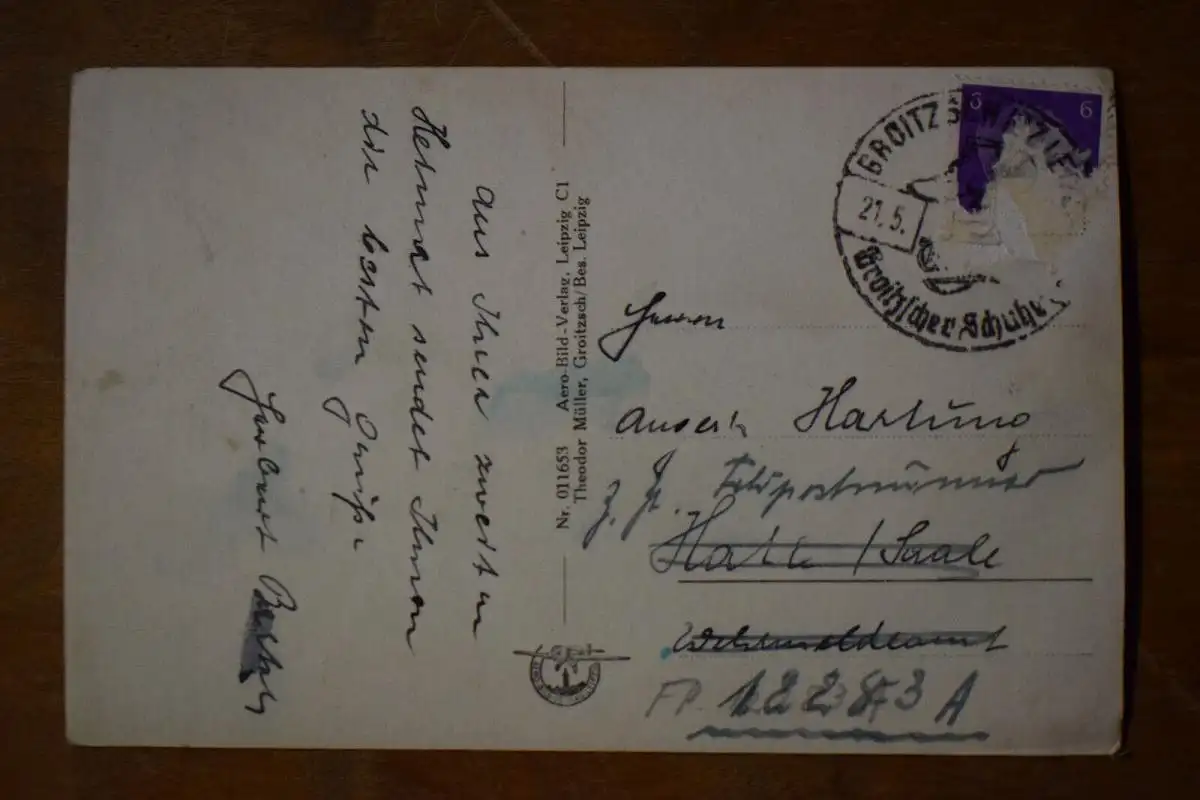 Aus Ihrer zweiten
Heimat sendet Ihnen
die besten Grüße
Herbert
Nr. 011653 Aero-Bild-Verlag, Leipzig C1
Theodor Müller, Groitzsch/Bes. Leipzig
6 6
GROITZSCH
21.5.
Groitzscher Schuhe
Herrn
Hartung
z. Zt. Feldpostnummer
Halle / Saale
Wehrmeldeamt
FP. 12283 A